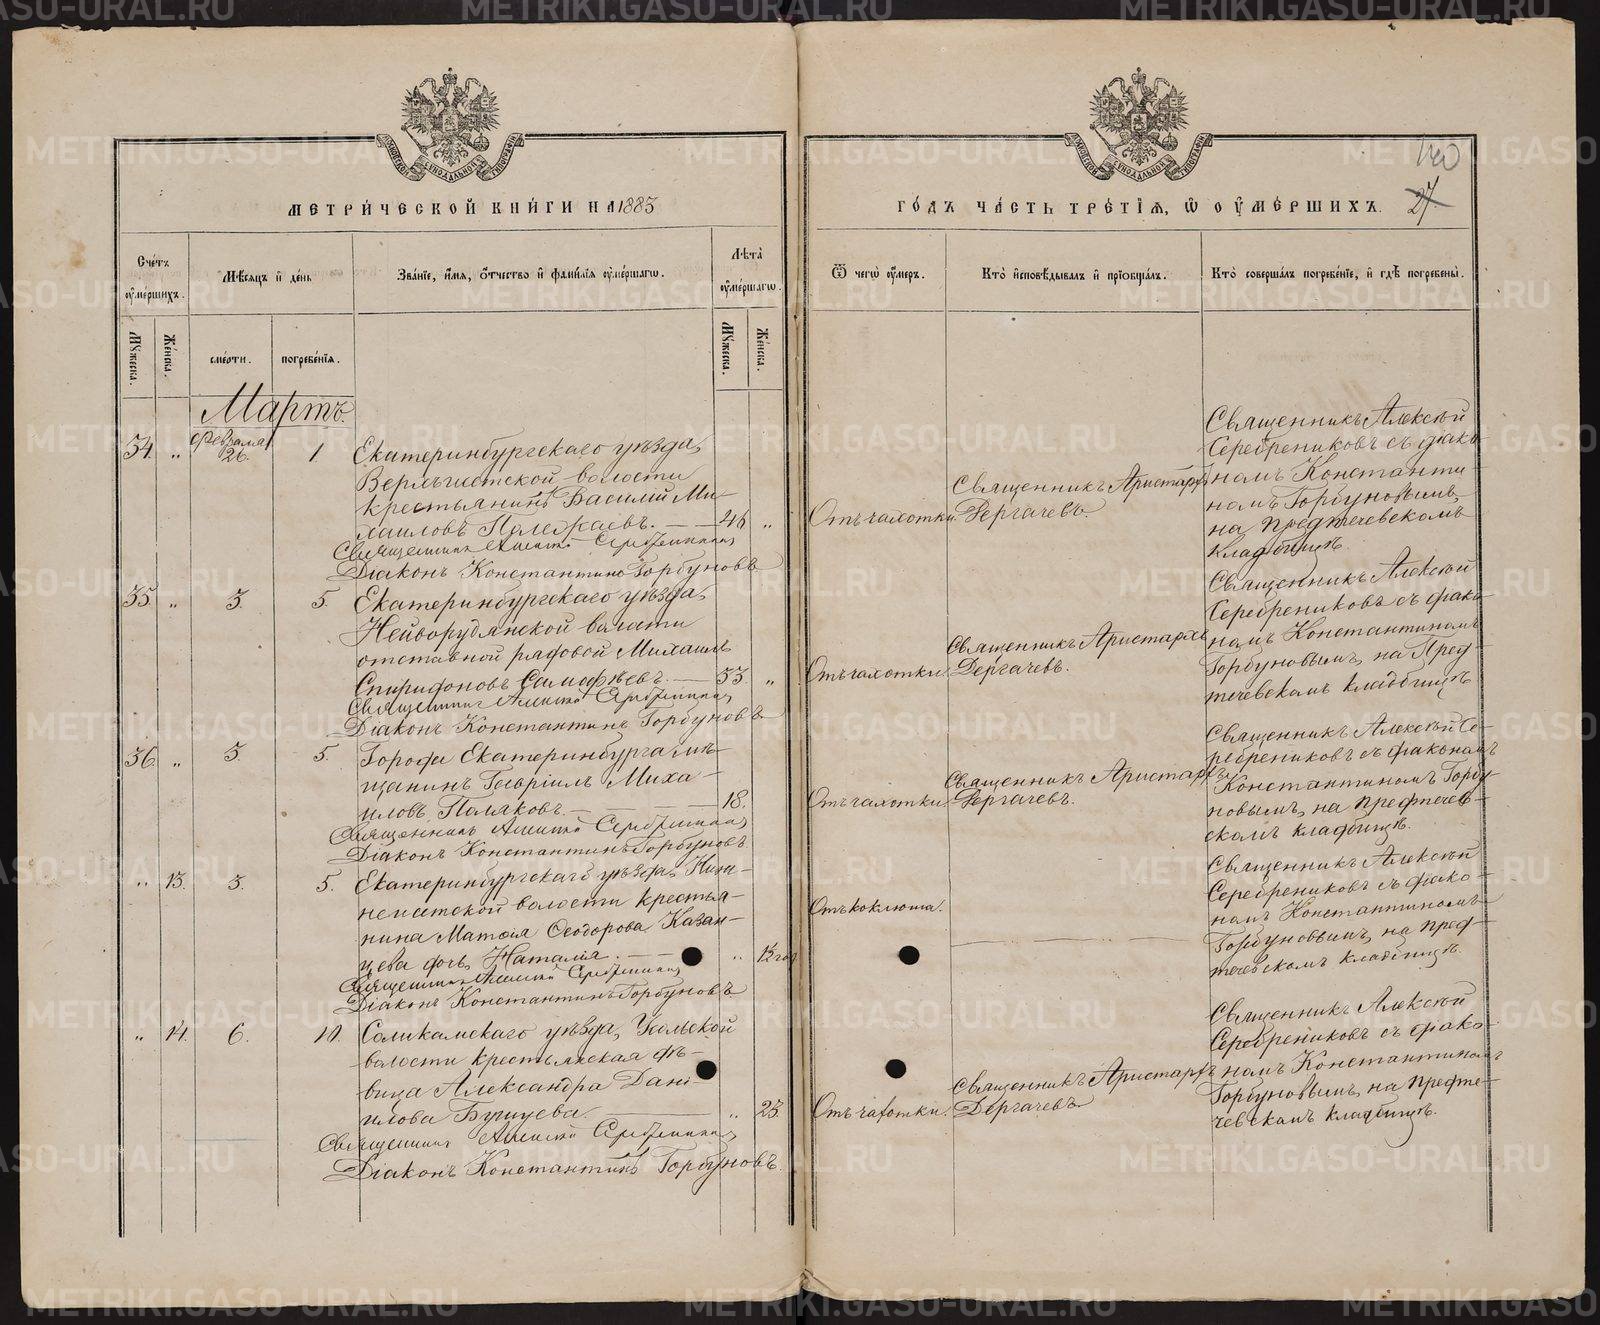 140
МЕТРИ́ЧЕСКОЙ КНИ́ГИ НА 1883
ГО́ДЪ ЧА́СТЬ ТРЕ́ТІѦ, Ѿ ОУ҆МЕ́РШИХЪ.
27
Сче́тъ оу҆ме́ршихъ.
Мѣ́сяцъ и҆ де́нь
Зва́ніе, и҆́мя, о҆́тчество и҆ фами́лія оу҆ме́ршагѡ.
Лѣ́та оу҆ме́ршагѡ.
Ѿ чегѡ̀ оу҆́меръ.
Кто̀ и҆сповѣ́дывалъ и҆ пріобща́лъ.
Кто̀ соверша́лъ погребе́ніе, и҆ гдѣ̀ погребены̀.
Мꙋ́жеска.
Же́нска.
сме́рти.
погребе́нія.
Мꙋ́жеска.
Же́нска.
Мартъ.
34. „ Февраля 26. 1. Екатеринбургскаго уѣзда,
волости
крестьянинъ Василій Ми-
хаиловъ Полежаевъ. — 46 „
Священникъ Алексій Серебрениковъ
Діаконъ Константинъ Горбуновъ
Отъ чахотки.
Священникъ Аристархъ
Дергачевъ.
Священникъ Алексѣй
Серебрениковъ съ діако-
номъ Константи-
номъ Горбуновымъ,
на Предтечевскомъ
кладбищѣ.
35. „ 3. 5. Екатеринбургскаго уѣзда,
Нейворудянской волости
отставной рядовой Михаилъ
Спиридоновъ — 53. „
Священникъ Алексій Серебрениковъ
Діаконъ Константинъ Горбуновъ
Отъ чахотки.
Священникъ Аристархъ
Дергачевъ.
Священникъ Алексѣй
Серебрениковъ съ діако-
номъ Константиномъ
Горбуновымъ, на Пред-
течевскомъ кладбищѣ
36. „ 3. 5. Города Екатеринбурга мѣ-
щанинъ Гавріилъ Миха-
иловъ Поляковъ. — 18.
Священникъ Алексій Серебрениковъ
Діаконъ Константинъ Горбуновъ.
Отъ чахотки.
Священникъ Аристархъ
Дергачевъ.
Священникъ Алексѣй Се-
ребрениковъ съ діакономъ
Константиномъ Горбу-
новымъ, на Предтечев-
скомъ кладбищѣ.
„ 13. 3. 5. Екатеринбургскаго уѣзда, Ниж-
неисетской волости крестья-
нина Матѳія Ѳеодорова Казан-
цева дочь Наталія. — „
Священникъ Алексій Серебрениковъ
Діаконъ Константинъ Горбуновъ
Отъ коклюша.
Священникъ Алексѣй
Серебрениковъ съ діако-
номъ Константиномъ
Горбуновымъ, на Пред-
течевскомъ кладбищѣ.
„ 14. 6. 10. Соликамскаго уѣзда, Усольской
волости крестьянская дѣ-
вица Александра Дані-
илова — „ 23
Священникъ Алексій Серебрениковъ
Діаконъ Константинъ Горбуновъ.
Отъ чахотки.
Священникъ Аристархъ
Дергачевъ.
Священникъ Алексѣй
Серебрениковъ съ діако-
номъ Константиномъ
Горбуновымъ, на Предте-
чевскомъ кладбищѣ.